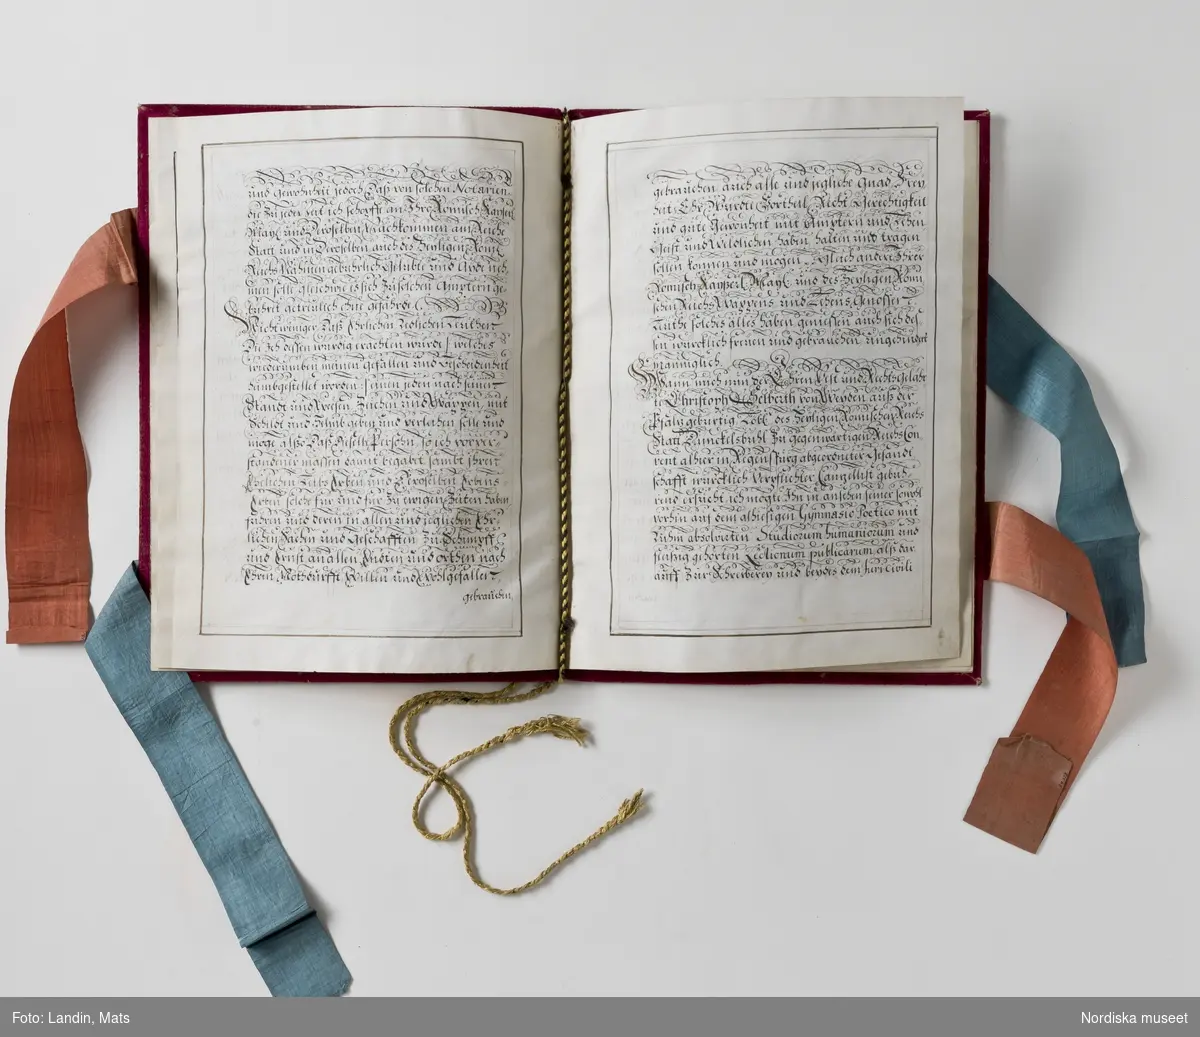 und Gewohnheit jedoch daß von solchen Notarien
die zu jeder Zeit ich schepffe an Ihro Römisch Kayserl
Mayt und Deroselben Nachkommen am Reiche
statt und in Deroselben auch des Heyligen Röm
Reichs Nahmen gebührlich Gelübte und
men solle gleichwie es sich zu solchen Ämptern ge-
bühret getreulich Ehrlichen Redlichen Leuthen
Die ich dessen würdig erachten würde welches
meinen gefallen und bescheidenheit
haimbgestellet worden einen jeden nach seinem
Standt und Wesen Zeichen und Wappen mit
Schildt und Helmb geben und verleihen solle und
möge alßo daß dieselb Persohn so ich vorver-
standener massen damit begabet sambt ihren
Ehelichen Leibs Erben und Derselben Erbens
Erben solche für und für zu ewigen Zeiten haben
führen und deren in allen und jeglichen Ehr-
lichen Sachen und Geschäfften zu Schimpff
und Ernst an allen Enden und orthen nach
Ihren Notdurfft Willen und Wohlgefallen
gebrauchen
gebrauchen auch alle und jegliche Gnad Frey
heit Ehr Würde Vortheil Recht Gerechtigkeit
und gute Gewonheit mit Ämptern und Lehen
Geist und Weltlichen haben halten und tragen
sollen können und mögen Gleich andere Ihrer
Römisch Kayserl Mayt und des Heyligen Römi
schen Reichs Wappens und Lehens Genossen
Leuthe solches alles haben geniessen auch sich des
sen würcklich freuen und gebrauchen ungehindert
männiglich
Wann mich nun der Ehren Vest und Rechtsgelährt
Christoph Helberth von Weyden auß der
Pfaltz gebürtig Löbl des Heyligen Römischen Reichs
Statt Dünckelsbühl zu gegenwärtigen Reichs Con
vent alhier in Regenspurg abgeordneter Gesandt
schafft würcklich Verpflichter Cancellist gebüh
rend ersucht ich mögte Ihn in ansehen seiner sowol
vorhin auf dem alhiesigen Gymnasio Poetico mit
Ruhm absolvirten Studiorum humaniorum und
fleissig gehörten Lectionum publicarum alß dar
auff zur Schreiberey und beydes dem Juri Civili
Foto: Landin, Mats
Nordiska museet